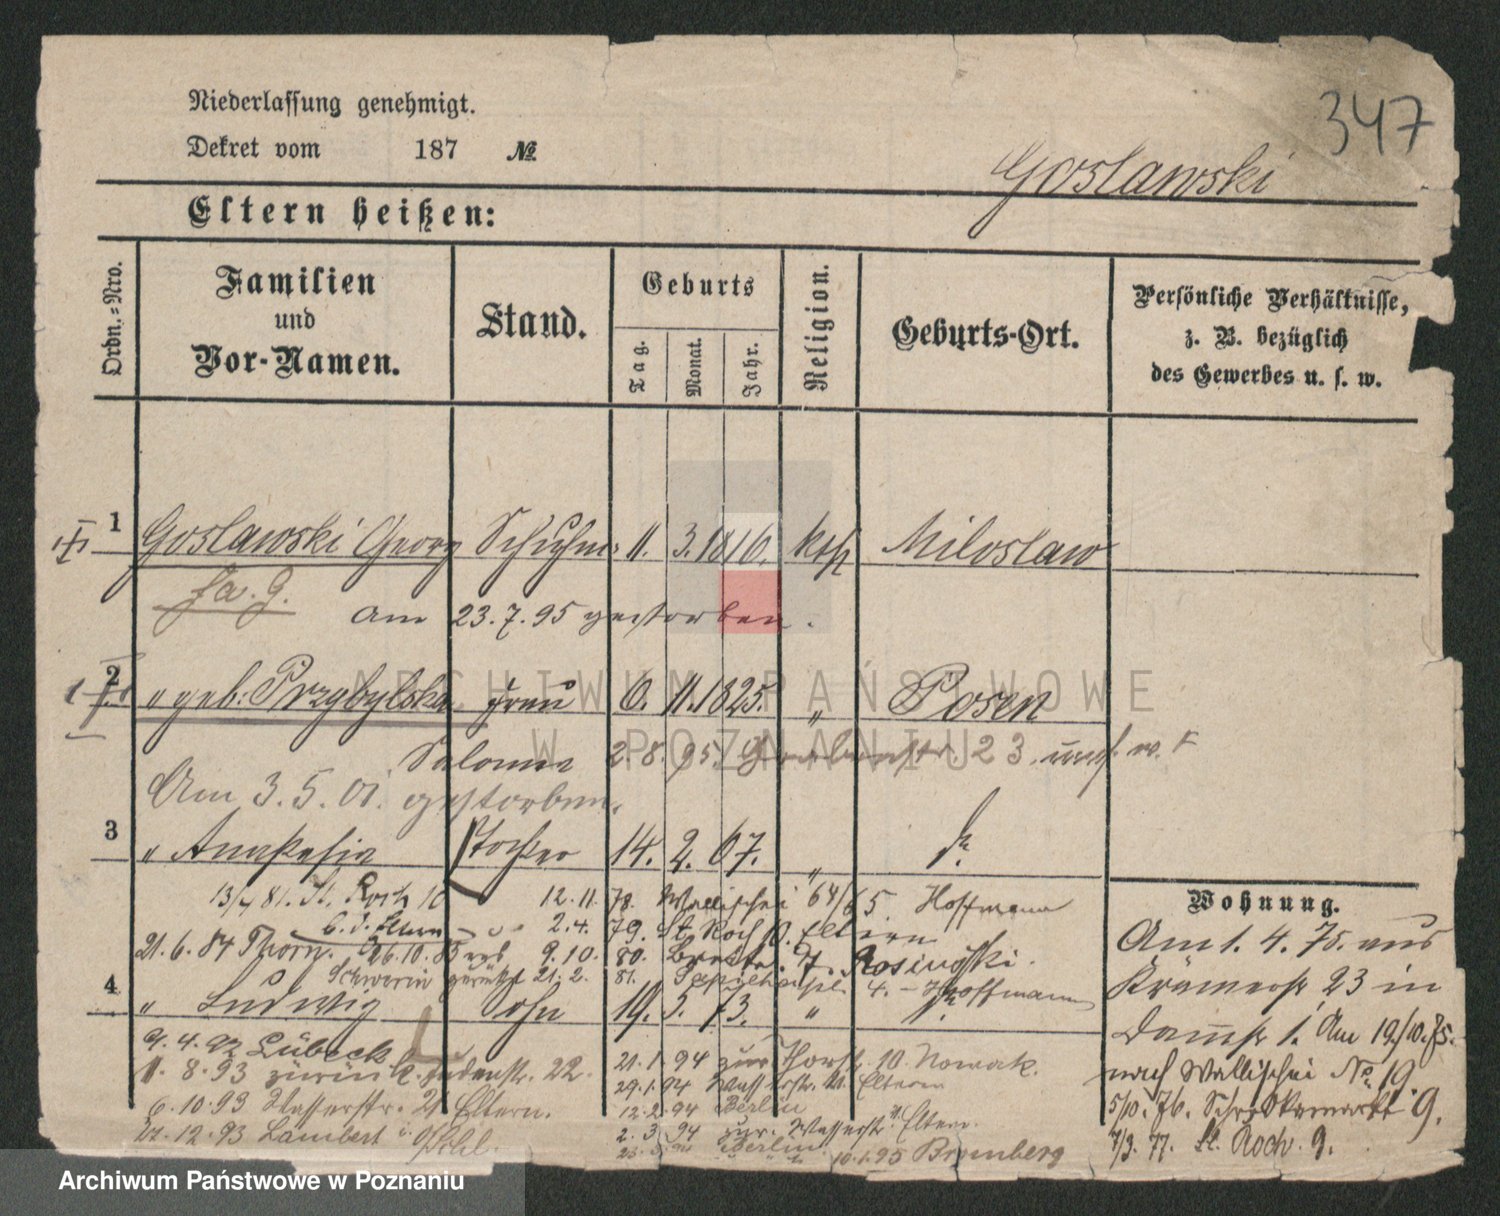 347
Niederlassung genehmigt.
Dekret vom 187 №
Goslawski
Eltern heißen:
Ordn.-Nro.
Familien und Vor-Namen.
Stand.
Geburts
Tag.
Monat.
Jahr.
Religion.
Geburts-Ort.
Persönliche Verhältnisse, z. B. bezüglich des Gewerbes u. s. w.
1 Goslawski Georg Schuhm. 11. 3. 1816. kath Miloslaw
am 23.7.95 gestorben.
2 " geb. Przybylska Frau 6. 11. 1825. " Posen
Salomea 2.8.95 23
Am 3.5.01. gestorben.
3 " Anastasia Tochter 14. 2. 67. "
13/4 81. St. Roch 10 12.11. 78. Wallischei 64/65 Hoffmann
b. d. Eltern 2.4. 79. St. Roch 10. Eltern
21.6.84 Thorn. 9.10. 80. 7. Rosinski.
Schwerin zurück 21.2. 81. 4. Hoffmann
4 " Ludwig Sohn 19. 5. 73. "
9.4.92 Lübeck
11.8.93 zurück 22.
6.10.93 Wasserstr. 21 Eltern.
27.12.93 Lambert
21.1.94 zur. 10. Nowak.
29.1.94 Wasserstr. 21. Eltern
12.2.94 Berlin
2.3.94 zur. Wasserstr. Eltern.
Berlin 10.1.95 Bromberg
Wohnung.
Am 1. 4. 75. aus
Krämerstr. 23 in
Damstr 1. Am 19/10.75.
nach Wallischei No. 19.
5/10. 76. 9.
7/3. 77. St. Roch. 9.
ARCHIWUM PAŃSTWOWE
W POZNANIU
Archiwum Państwowe w Poznaniu